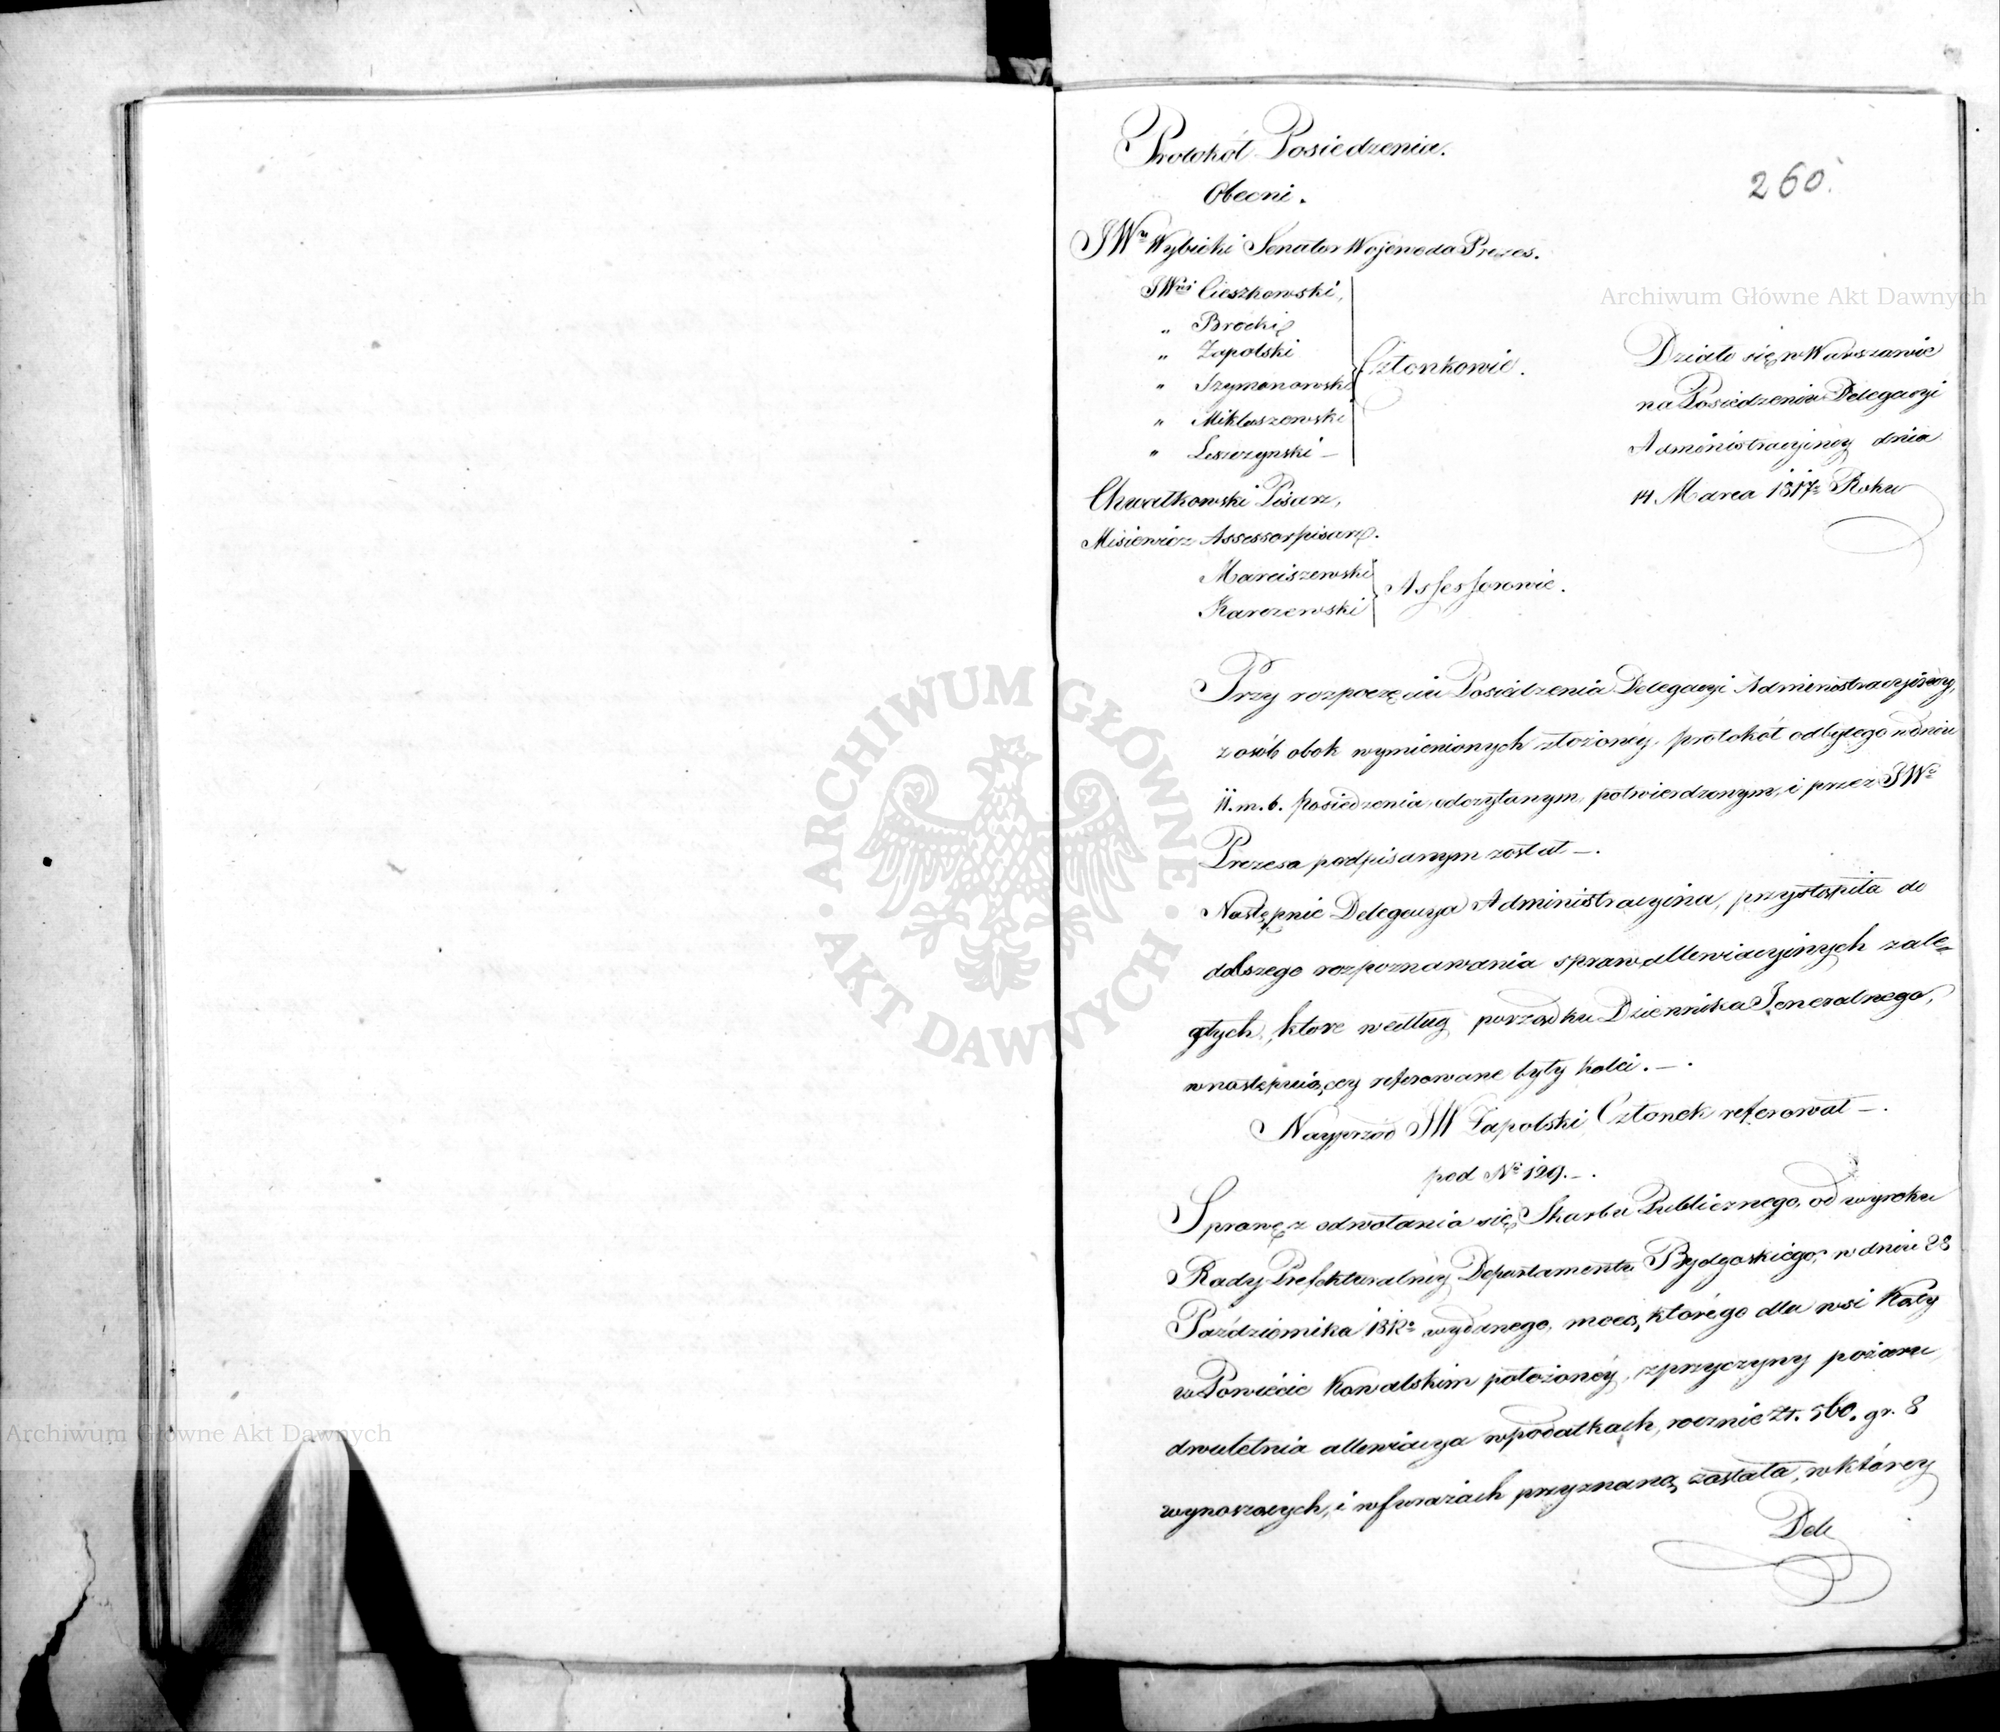 Protokół Posiedzenia.
260.
Obecni.
JWny Wybicki Senator Wojewoda Prezes.
JWni Cieszkowski,
„ Brocki
„ Zapolski
„ Szymanowski
„ Mikłaszewski
„ Leszczynski —
Członkowie.
Działo się w Warszawie
na Posiedzeniu Delegacyi
Administracyinéy dnia
14 Marca 1817º Roku
Chwałkowski Pisarz,
Misiewicz Assessorpisarz.
Marciszewski
Karczewski
Assessorowie.
Przy rozpoczęciu Posiedzenia Delegacyi Administracyinéy,
z osób obok wymienionych złożonéy, protokół odbytego w dniu
11. m. b. Posiedzenia odczytanym, potwierdzonym, i przez JWo
Prezesa podpisanym został —.
Następnie Delegacya Administracyina, przystąpiła do
dalszego rozpoznawania spraw allewiacyinych zale-
głych, ktore według porządku Dziennika Jeneralnego,
w następuiącey referowane były kolei. —.
Nayprzód JW Zapolski Członek referował —.
pod No 129. —.
Sprawę z odwołania się Skarbu Publicznego, od wyroku
Rady Prefekturalnéy Departamentu Bydgoskiégo, w dniu 28
Października 1812o wydanego, mocą którégo dla wsi Kąty
w Powiécie Kowalskim położonéy, z przyczyny pożaru
dwuletnia allewiacya w podatkach, rocznie Zł. 560. gr. 8
wynoszących, i w furażach przyznaną została, w którey
Dele
Archiwum Główne Akt Dawnych
ARCHIWUM GŁÓWNE • AKT DAWNYCH •
Archiwum Główne Akt Dawnych